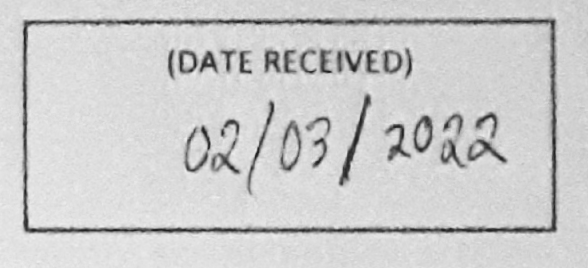 (DATE RECEIVED)
02/03/2022